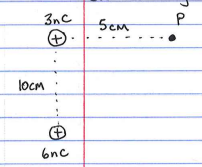 3nC
5cm
P
10cm
6nC